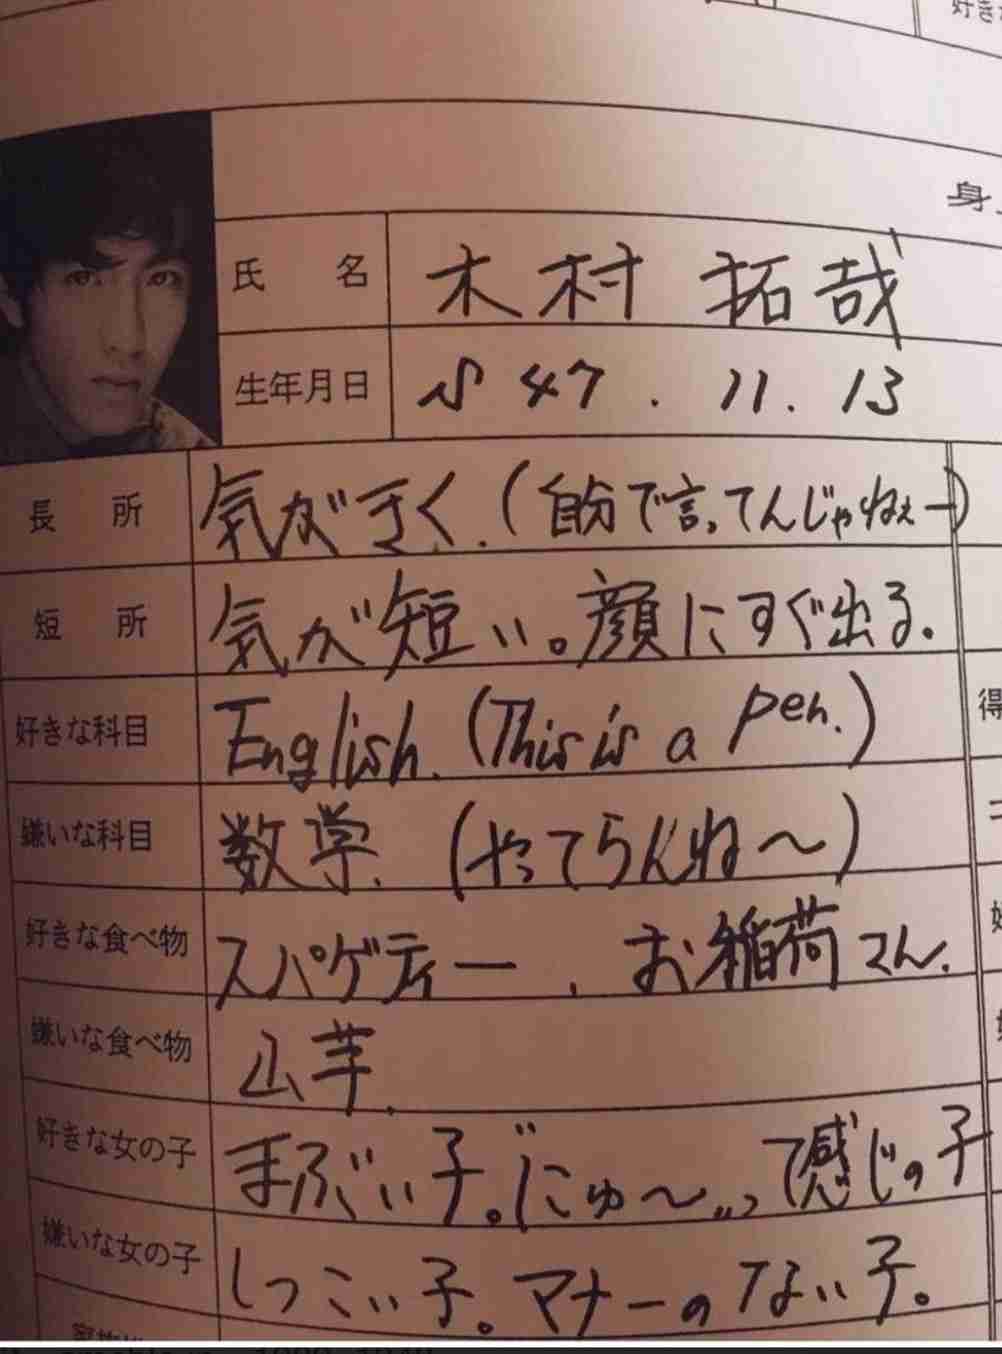 好き
身
氏 名 木村 拓哉
生年月日 S 47 . 11 . 13
長 所 気がきく.(自分で言ってんじゃねぇー)
短 所 気が短い。顔にすぐ出る。
好きな科目 English. (This is a pen.)
得
嫌いな科目 数学. (やってらんね〜)
好きな食べ物 スパゲティー 、 お稲荷さん.
嫌いな食べ物 山芋.
好きな女の子 まぶい子。にゅ〜って感じの子
嫌いな女の子 しつこい子。マナーのない子。